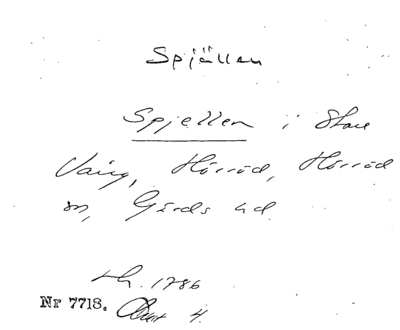 Spjällen
Spjellen i Stora
Vång, Hörröd, Hörröd
sn, Gärds hd
1786
Nr 7713. Akt 4.